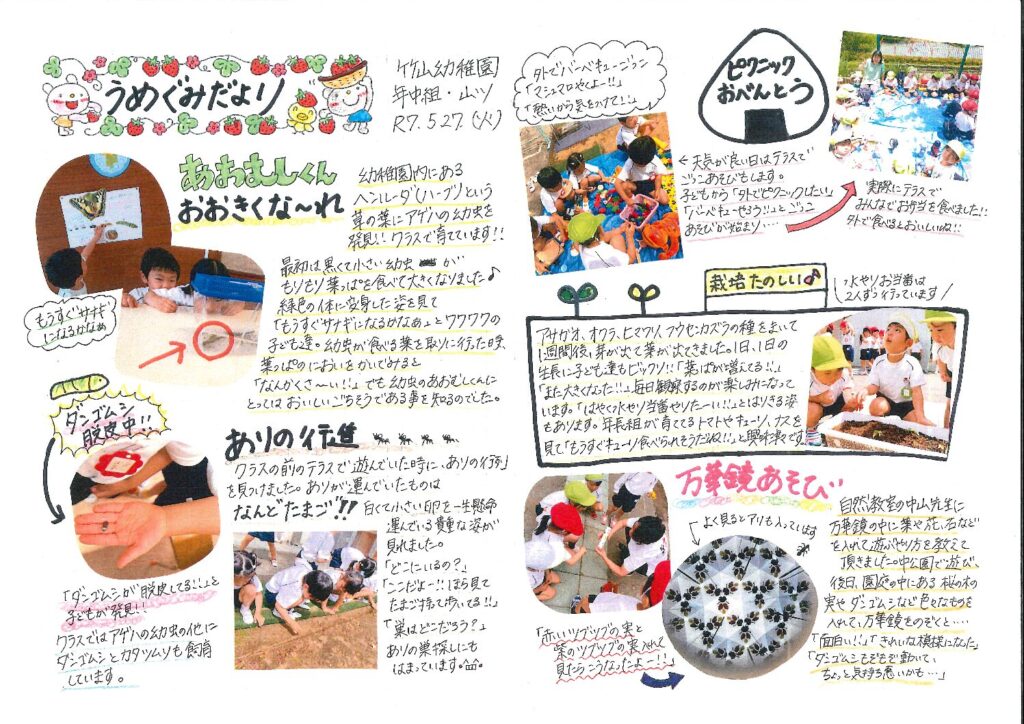 うめぐみだより
竹山幼稚園
年中組・山ツ
R7.5.27.(火)
あおむしくん
おおきくな〜れ
幼稚園内にある
ヘンルーダ(ハーブ)という
草の葉にアゲハの幼虫を
発見!! クラスで育てています!!
最初は黒くて小さい幼虫が
もりもり葉っぱを食べて大きくなりました♪
緑色の体に変身した姿を見て
「もうすぐサナギになるかなぁ」とワクワクの
子ども達。幼虫が食べる葉を取りに行った時、
葉っぱのにおいをかいでみると
「なんかくさ〜い!!」でも幼虫のあおむしくんに
とってはおいしいごちそうである事を知るのでした。
もうすぐサナギ
になるかなぁ
ダンゴムシ
脱皮中!!
「ダンゴムシが脱皮してる!!」と
子どもが発見!!
クラスではアゲハの幼虫の他に
ダンゴムシとカタツムリも飼育
しています。
ありの行進
クラスの前のテラスで遊んでいた時に、ありの行列
を見つけました。ありが運んでいたものは
なんどたまご!!
白くて小さい卵を一生懸命
運んでいる貴重な姿が
見れました。
「どこにいるの?」
「ここだよー!! ほら見て
たまご持って歩いてる!!」
「巣はどこだろう?」
ありの巣探しにも
はまっています。
外でバーベキューごっこ
「マシュマロやくよー!!」
「熱いから気をつけて!!」
ピクニック
おべんとう
←天気が良い日はテラスで
ごっこあそびもします。
子どもから「外でピクニックしたい」
「バーベキューやろう!!」とごっこ
あそびが始まり…
実際にテラスで
みんなでお弁当を食べました!!
外で食べるとおいしいね!!
栽培たのしい♪
水やりお当番は
2人ずつ行っています
アサガオ、オクラ、ヒマワリ、フウセンカズラの種をまいて
1週間後、芽が出て葉が出てきました。1日、1日の
生長に子ども達もビックリ!!「葉っぱが増えてる!!」
「また大きくなった!!」毎日観察するのが楽しみになって
います。「はやく水やり当番やりたーい!!」とはりきる姿
もあります。年長組が育ててるトマトやキューリ、ナスを
見て「もうすぐキューリ食べられそうだね!!」と興味津々です
万華鏡あそび
よく見るとアリも入っています
自然教室の中山先生に
万華鏡の中に葉や花、石などを
入れて遊ぶやり方を教えて
頂きました。中公園で遊び、
後日、園庭の中にある桜の木の
実やダンゴムシなど色々なものを
入れて、万華鏡をのぞくと…
「面白い!!」「きれいな模様になった」
「ダンゴムシもぞもぞ動いて、
ちょっと気持ち悪いかも…」
「赤いツブツブの実と
紫のツブツブの実入れて
見たらこうなったよー!!」